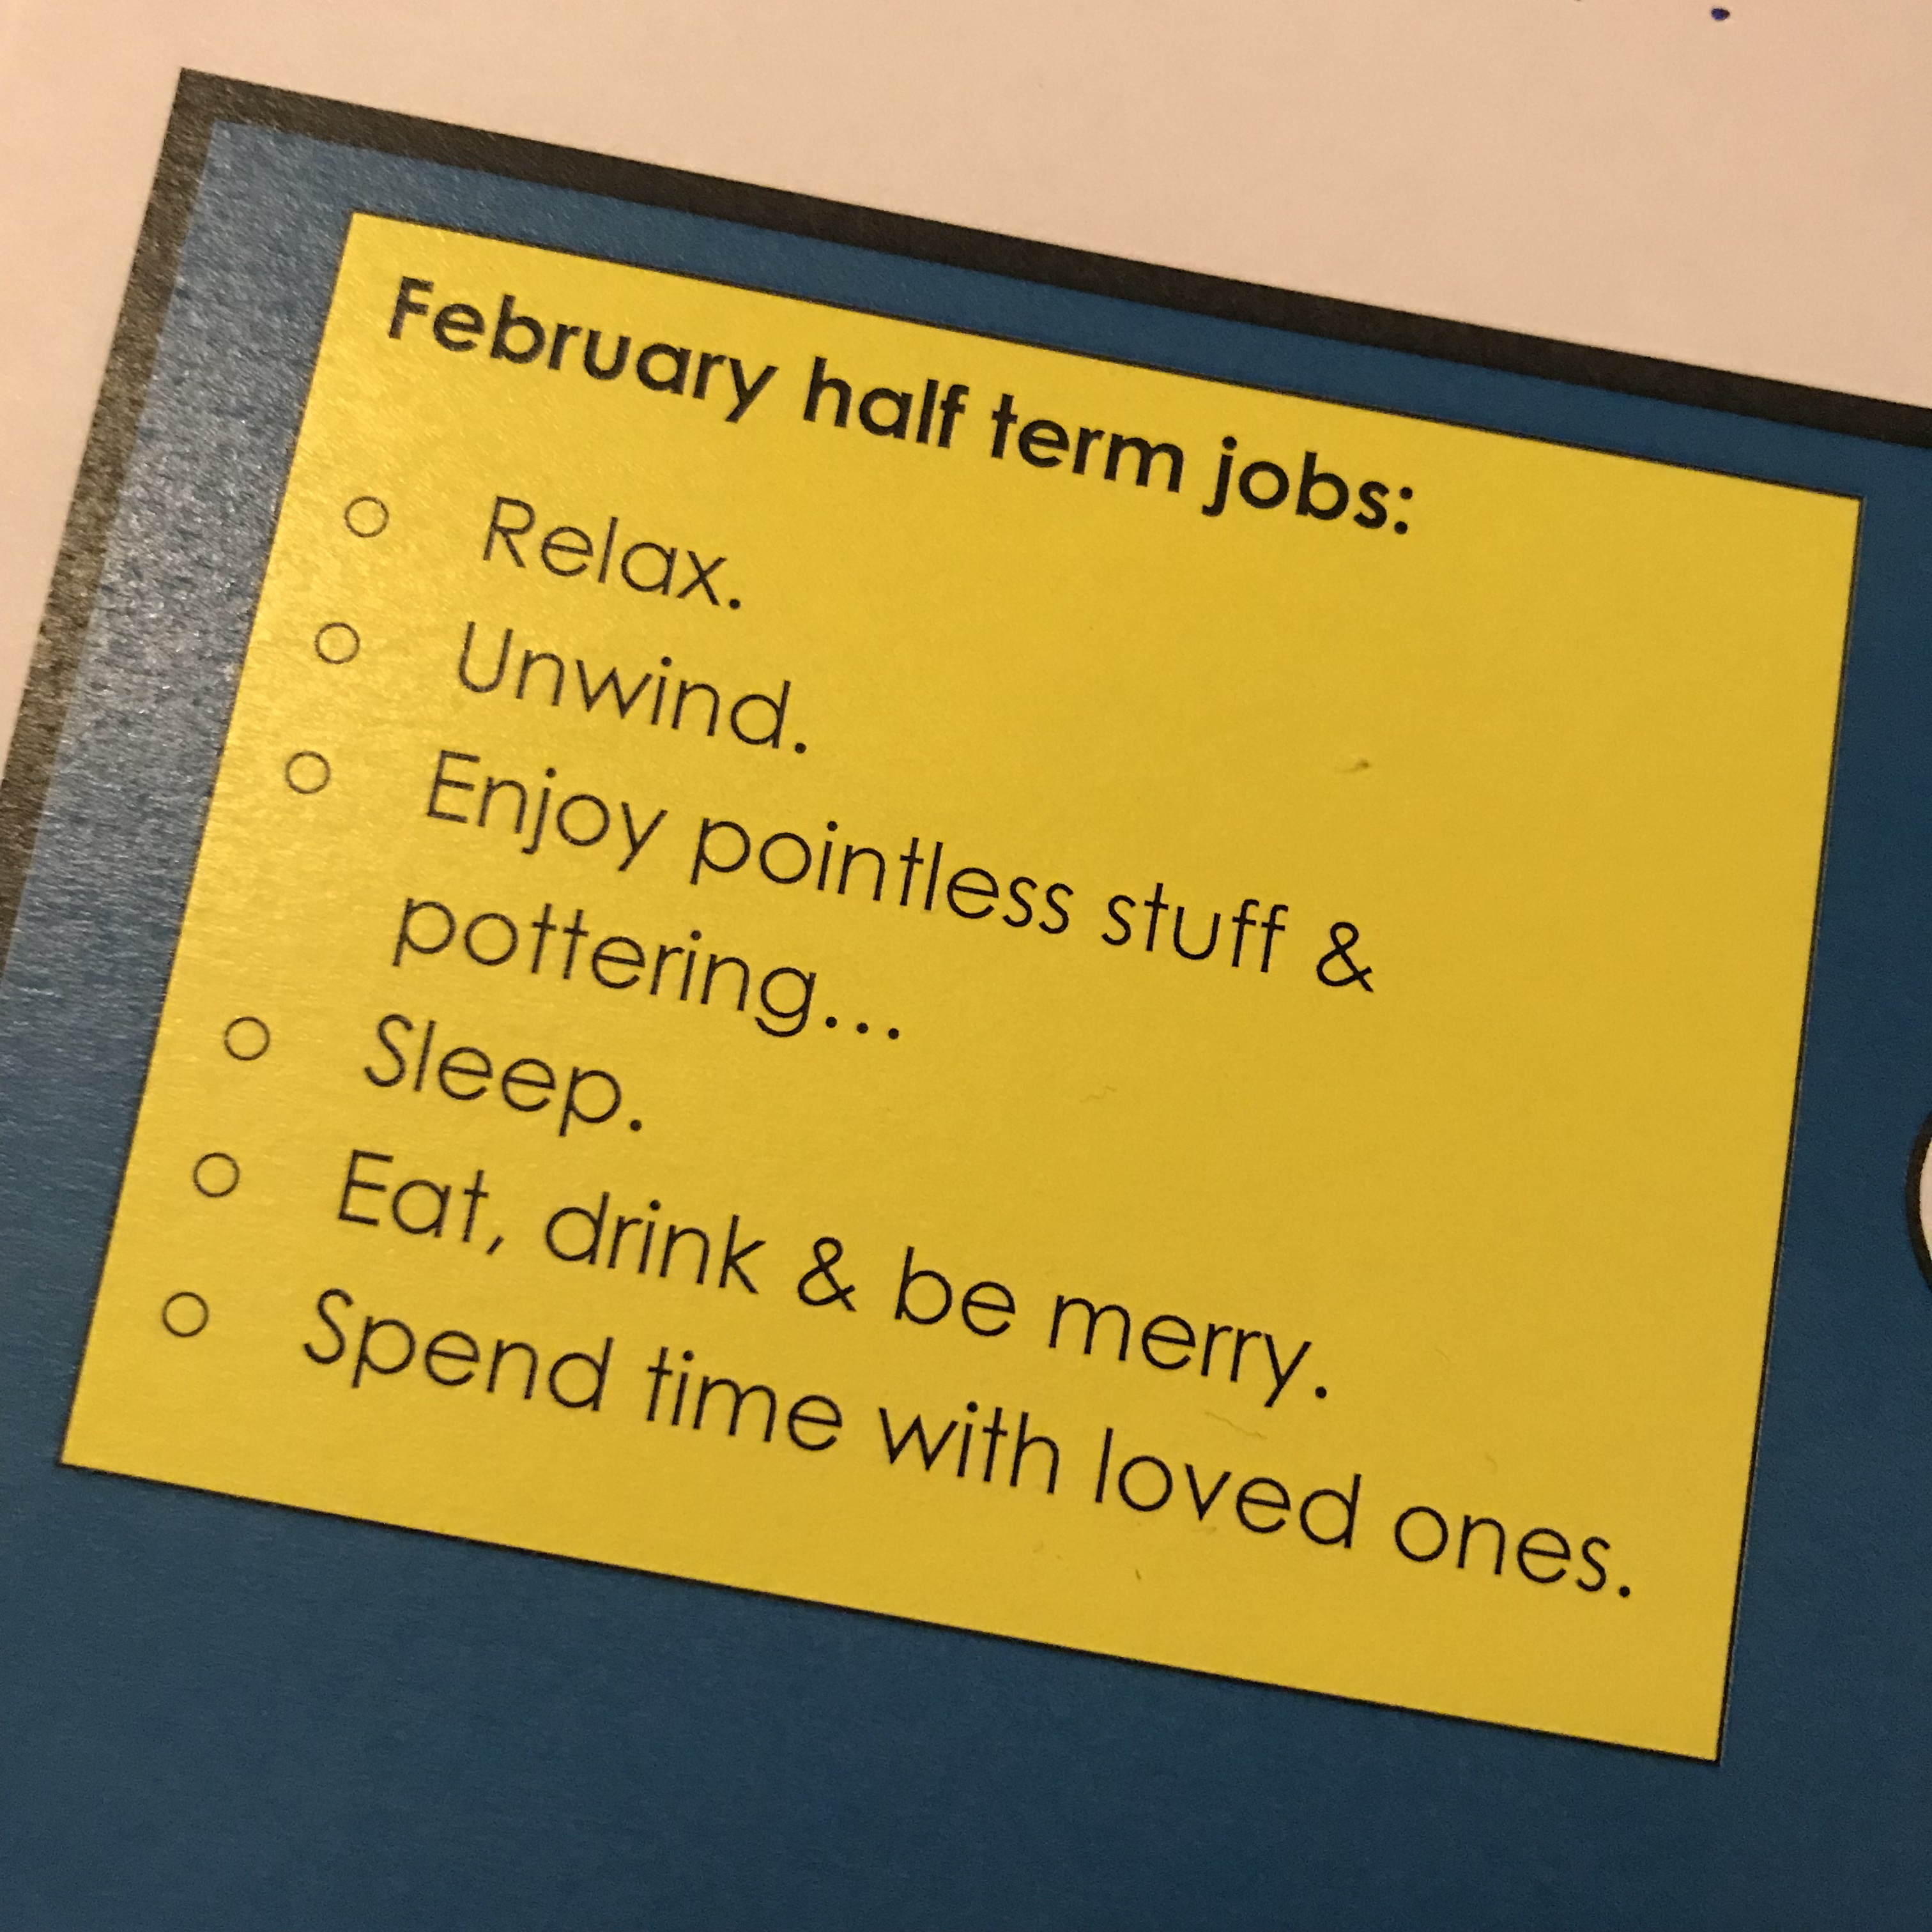 February half term jobs:
○ Relax.
○ Unwind.
○ Enjoy pointless stuff &
pottering...
○ Sleep.
○ Eat, drink & be merry.
○ Spend time with loved ones.